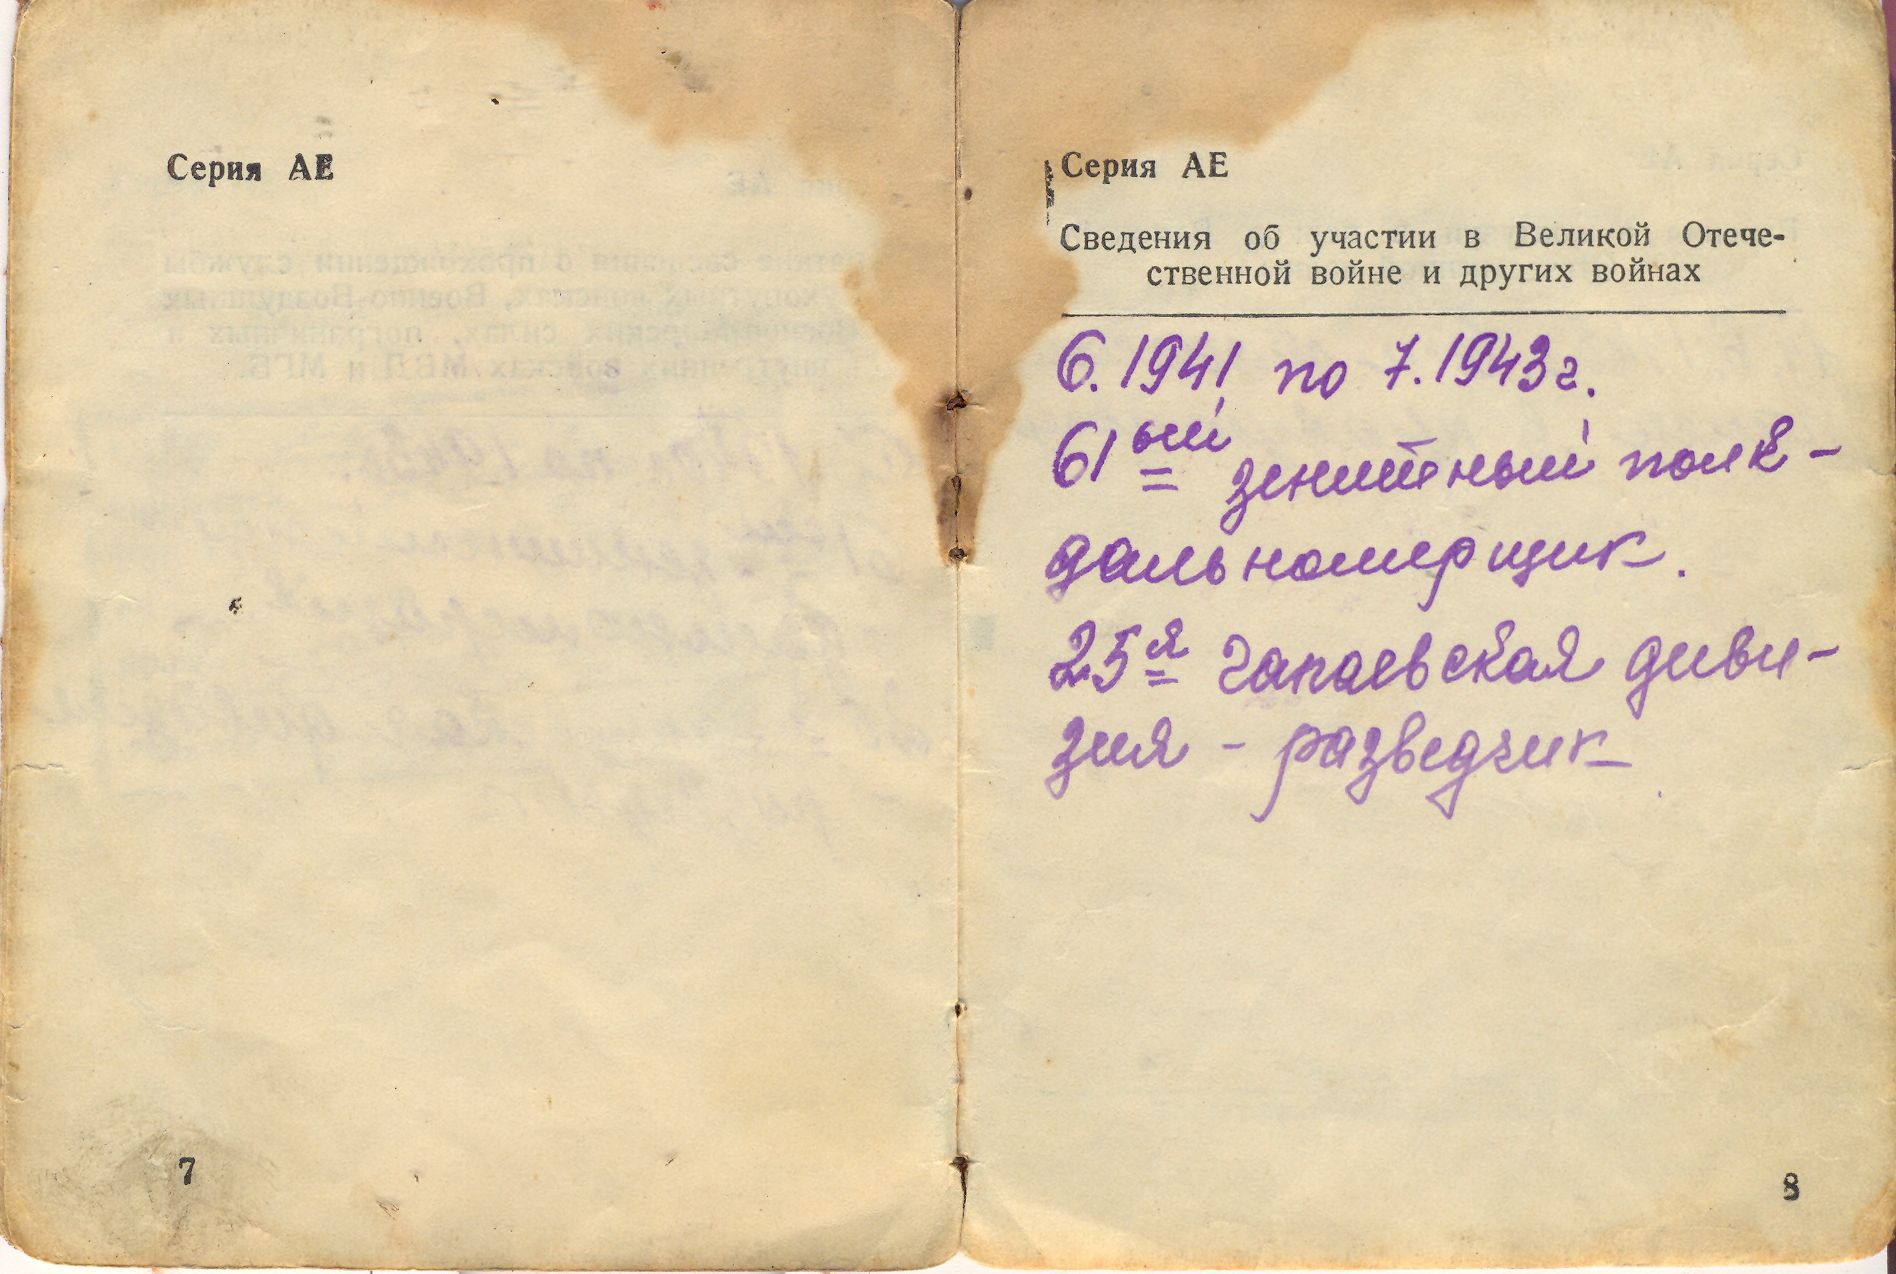 Серия АЕ
7
Серия АЕ
Сведения об участии в Великой Отече-
ственной войне и других войнах
6.1941 по 7.1943г.
61ый зенитный полк -
дальномерщик.
25я чапаевская диви-
зия - разведчик
8